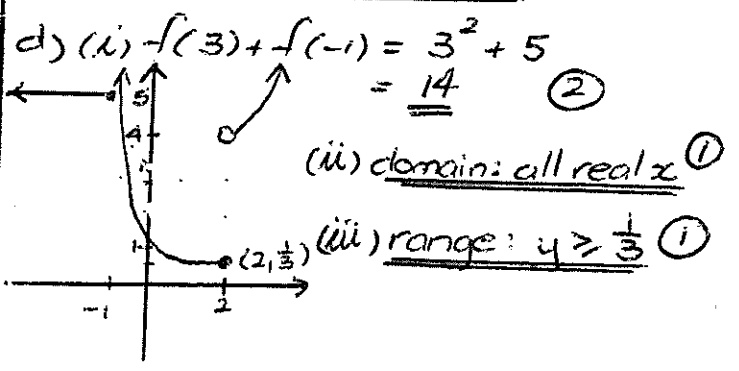 d) (i) f(3) + f(-1) = 3² + 5
= 14 ②
(ii) domain: all real x ①
(iii) range: y ≥ 1/3 ①
5
4
1
(2, 1/3)
-1 2